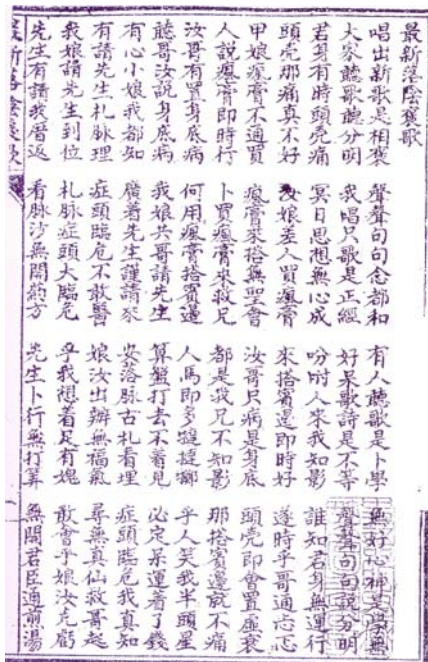 最新落陰褒歌
唱出新歌是相褒 聲聲句句念都和 有人聽歌是卜學 無好心神是學無
大家聽歌聽分明 我唱只歌是正經 好呆歌詩是不等 聲聲句句說分明
君身有時頭壳痛 冥日思想無心成 吩咐人來我知影 誰知君身無運行
頭壳那痛真不好 汝娘差人買瘋膏 來搭賓邊即時好 遂時乎哥通忘
甲娘瘋膏不通買 瘋膏來搭無聖會 汝哥只病是身底 頭壳即會置虛衰
人說瘋膏即時行 卜買瘋膏來救兄 都是我兄不知影 那搭賓邊就不痛
汝哥有置身底病 何用瘋膏搭賓邊 人馬即多 乎人笑我半頭星
聽哥汝說身底病 我娘共哥請先生 算盤打去不着見 必定呆運着了錢
有心小娘我都知 磨着先生謹請來 安落脉古札看埋 症頭臨危我真知
有請先生札脉理 症頭臨危不敢醫 娘汝出辦無福氣 尋無真仙救哥起
我娘請先生到位 札脉症頭大臨危 乎我想着足有愧 敢會乎娘汝克虧
先生有請我厝返 看脉沙無開葯方 先生卜行無打算 無開君臣通煎湯